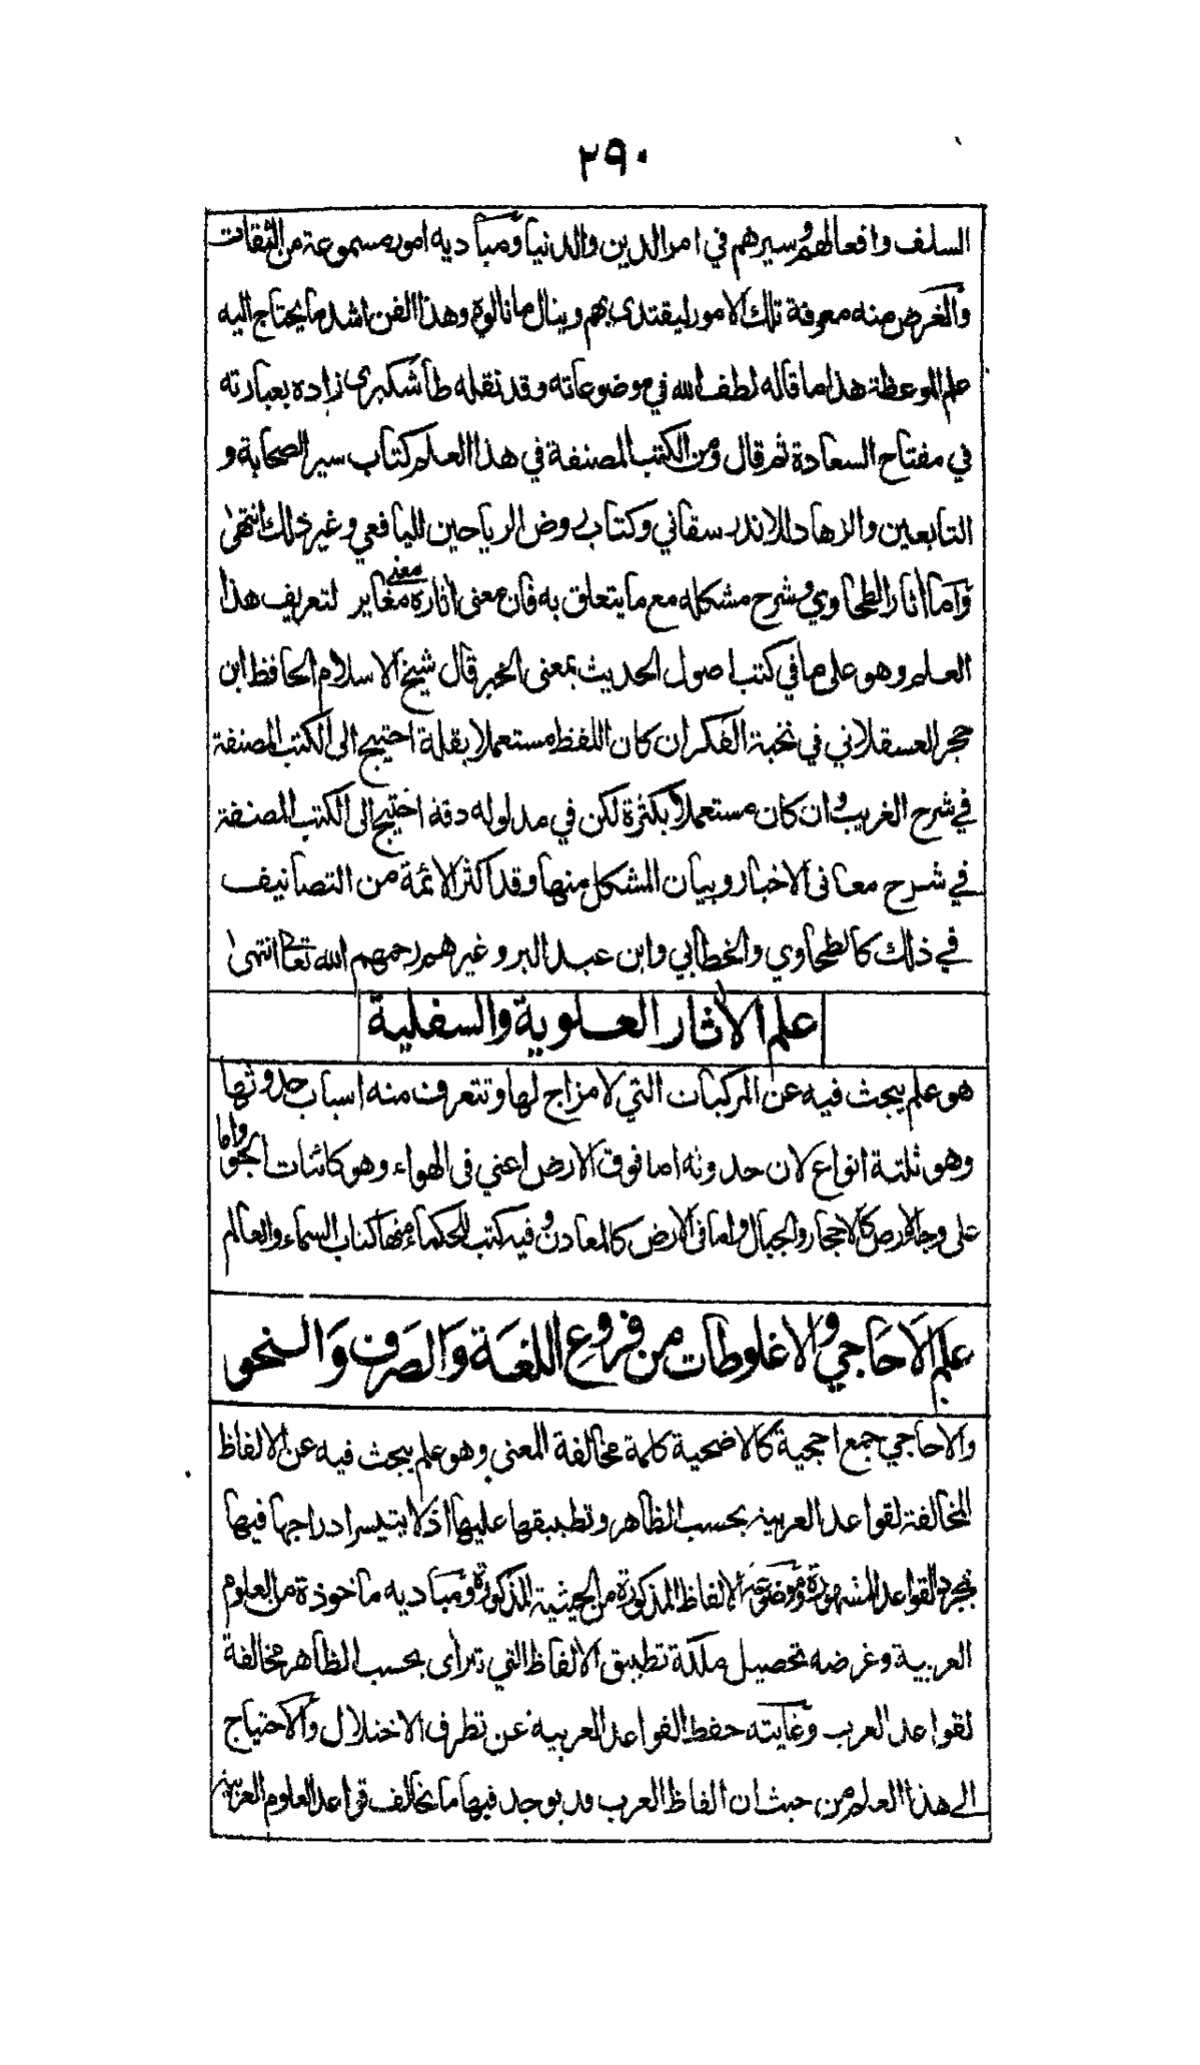 ٢٩٠
السلف وافعالهم وسيرهم في امر الدين والدنيا ومباديه امور مسموعة من الثقات
والغرض منه معرفة تلك الامور ليقتدى بهم وينال ما نالوه وهذا الفن اشد ما يحتاج اليه
علم الموعظة هذا ما قاله لطف الله في موضوعاته وقد نقله طاشكبرى زاده بعبارته
في مفتاح السعادة ثم قال ومن الكتب المصنفة في هذا العلم كتاب سير الصحابة و
التابعين والزهاد للاندرسقاني وكتاب روض الرياحين لليافعي وغير ذلك انتهى
واما اثار الطحاوي وشرح مشكله مع ما يتعلق به فان معنى اثاره معنى مغاير لتعريف هذا
العلم وهو على ما في كتب اصول الحديث بمعنى الخبر قال شيخ الاسلام الحافظ ابن
حجر العسقلاني في نخبة الفكر ان كان اللفظ مستعملا بقلة احتيج الى الكتب المصنفة
في شرح الغريب وان كان مستعملا بكثرة لكن في مدلوله دقة احتيج الى الكتب المصنفة
في شرح معانى الاخبار وبيان المشكل منها وقد اكثر الائمة من التصانيف
في ذلك كالطحاوي والخطابي وابن عبد البر وغيرهم رحمهم الله تعا انتهى
علم الاثار العلوية والسفلية
هو علم يبحث فيه عن المركبات التي لا مزاج لها وتتعرف منه اسباب حدوثها
وهو ثلثة انواع لان حدوثه اما فوق الارض اعني فى الهواء وهو كائنات الجو واما
على وجه الارض كالاحجار والجبال واما فى الارض كالمعادن وفيه كتب للحكماء منها كتاب السماء والعالم
علم الاحاجي والاغلوطات من فروع اللغة والصرف والنحو
والاحاجي جمع احجية كالاضحية كلمة مخالفة المعنى وهو علم يبحث فيه عن الالفاظ
المخالفة لقواعد العربية بحسب الظاهر وتطبيقها عليها اذ لا يتيسر ادراجها فيها
بمجرد القواعد المشهورة وموضوعه الالفاظ المذكورة من الحيثية المذكورة ومباديه ماخوذة من العلوم
العربية وغرضه تحصيل ملكة تطبيق الالفاظ التي تترأى بحسب الظاهر مخالفة
لقواعد العرب وغايته حفظ القواعد العربية عن تطرف الاختلال والاحتياج
الى هذا العلم من حيث ان الفاظ العرب قد يوجد فيها ما يخالف قواعد العلوم العربية